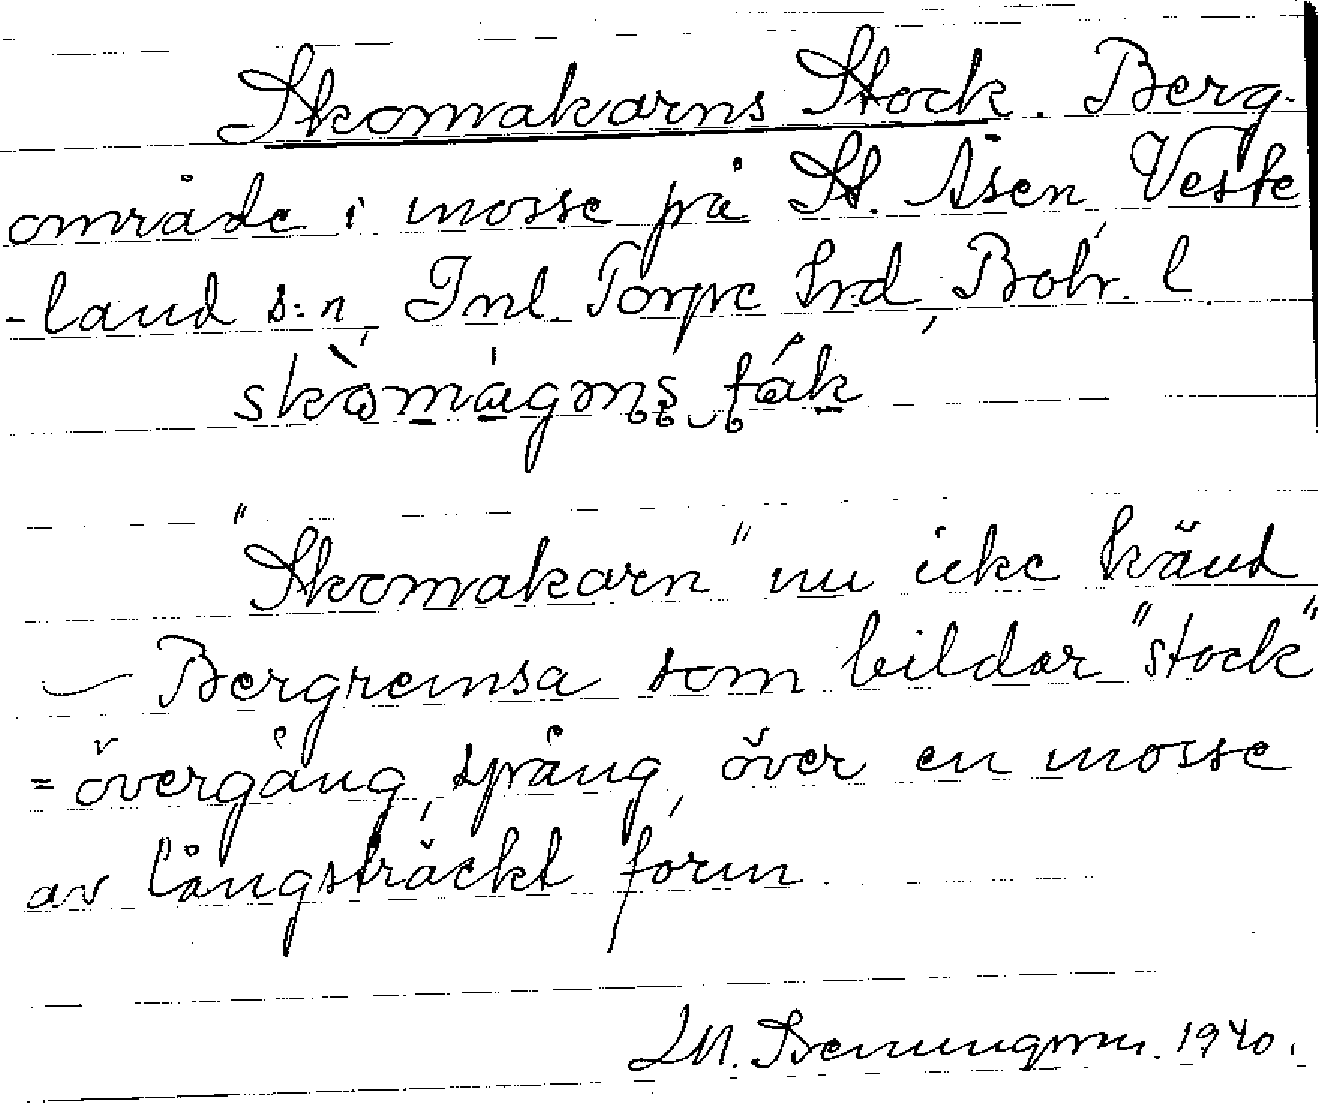 Skomakarns Stock. Berg-
område i mosse på St. Åsen, Veste
-land s:n, Inl. Torpe hrd, Boh. l.
"Skomakarn" nu icke känd
- Bergremsa som bildar "stock"
= övergång, spång, över en mosse
av långsträckt form.
1940.